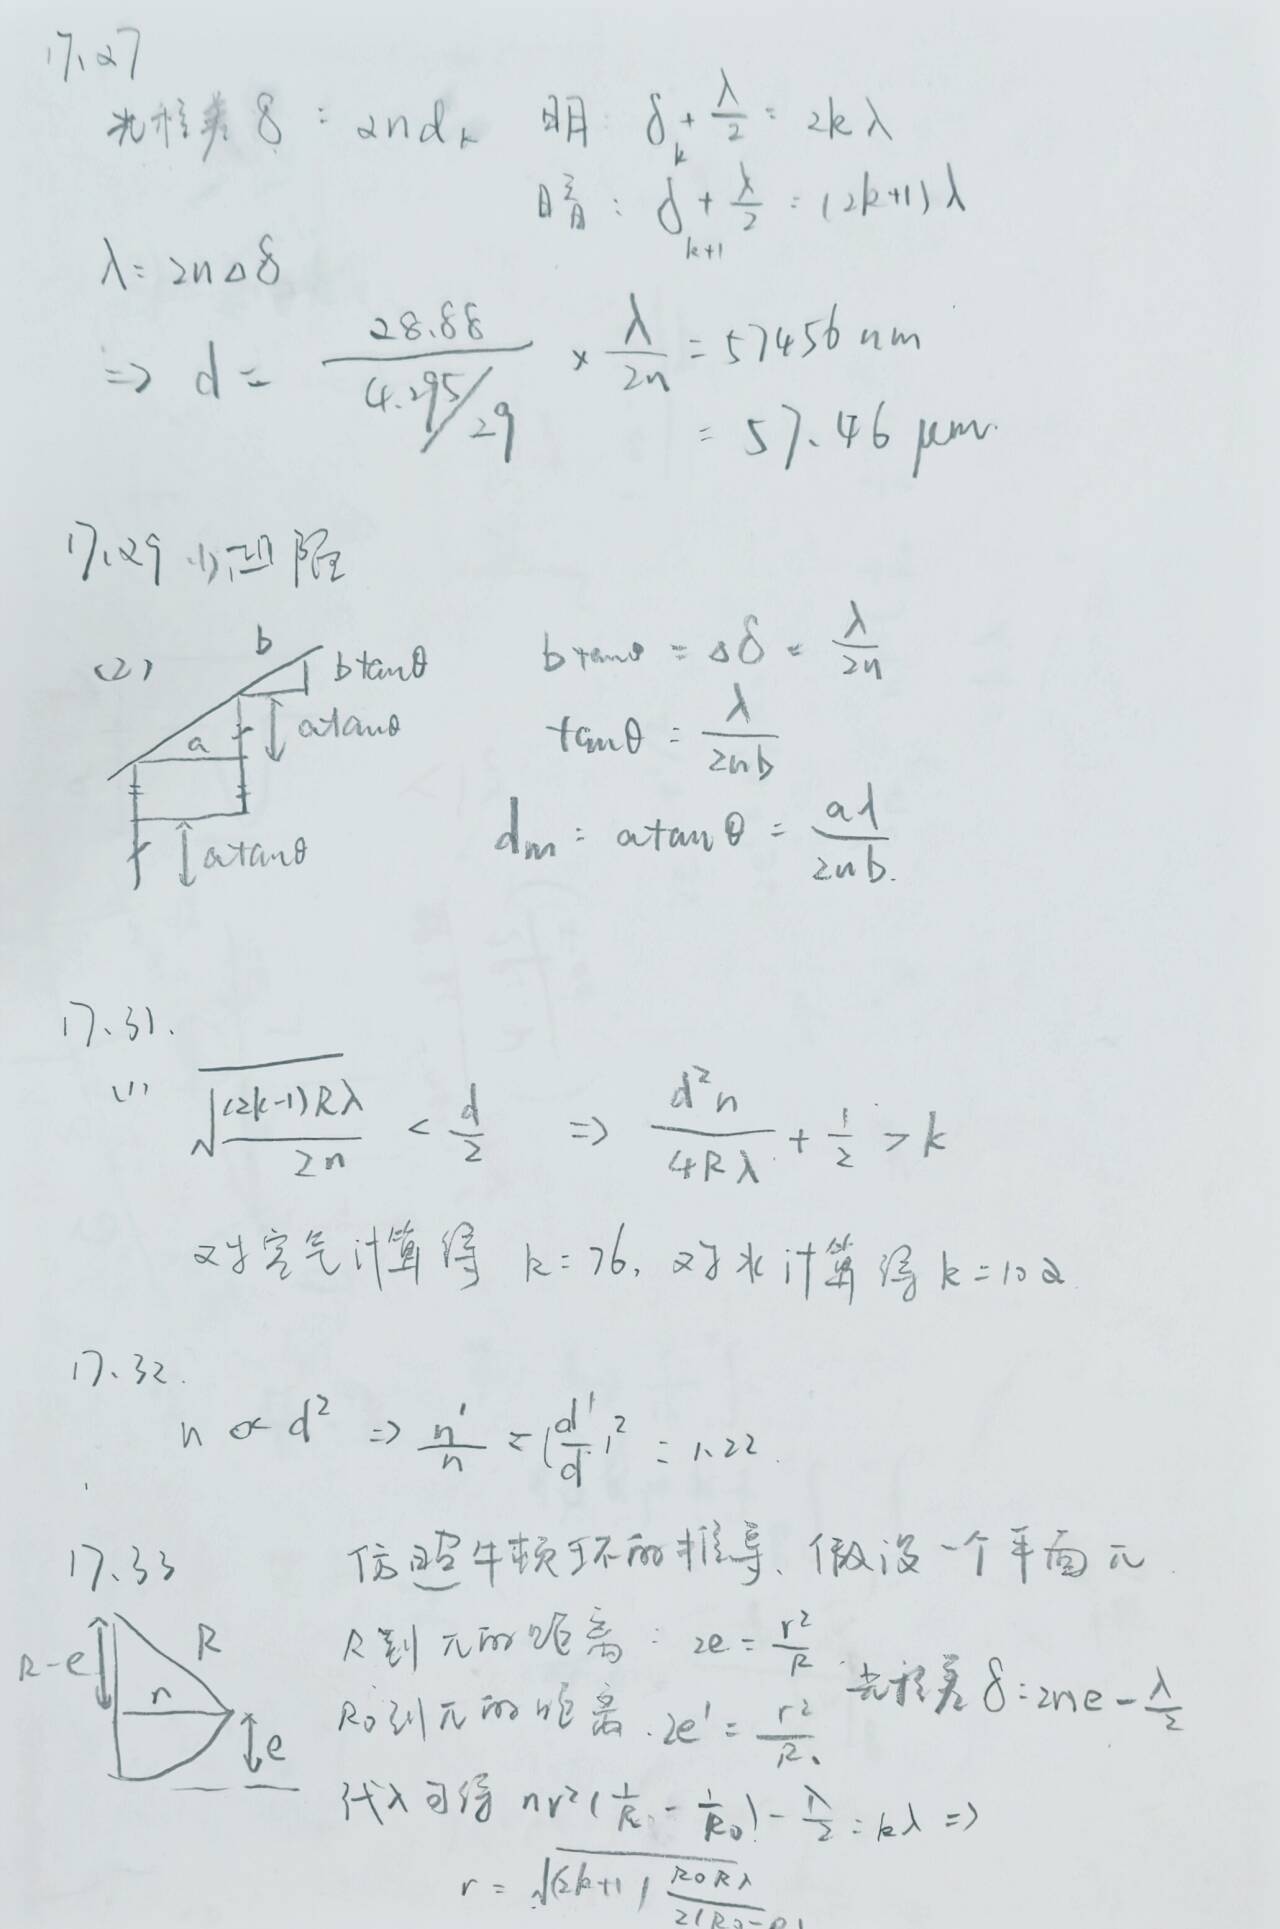 17.27
光程差 δ = 2nd_k 明: δ_k + λ/2 = 2kλ
暗: δ_{k+1} + λ/2 = (2k+1)λ
λ = 2nΔδ
⇒ d = 28.88/(4.295/29) × λ/2n = 57456 nm
= 57.46 μm.
17.29 (1) 凹陷
(2) b btanθ btanθ = Δδ = λ/2n
a atanθ tanθ = λ/2nb
atanθ d_m = atanθ = aλ/2nb.
17.31.
(1) √((2k-1)Rλ/2n) < d/2 ⇒ d²n/4Rλ + 1/2 > k
对空气计算得 k=76, 对水计算得 k=102
17.32.
n ∝ d² ⇒ n'/n = (d'/d)² = 1.22.
17.33 仿照牛顿环的推导、假设一个平面π
R-e R r e
R到π的距离: 2e = r²/R
光程差 δ=2ne - λ/2
R₀到π的距离. 2e' = r²/R₀
代入可得 nr²(1/R - 1/R₀) - λ/2 = kλ ⇒
r = √((2k+1) R₀Rλ/2(R₀-R))